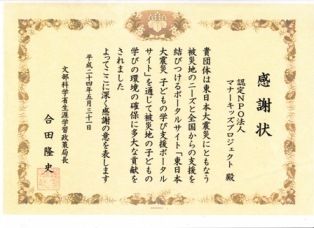 感謝状
認定NPO法人
マナーキッズプロジェクト 殿
貴団体は東日本大震災にともなう
被災地のニーズと全国からの支援を
結びつけるポータルサイト「東日本
大震災 子どもの学び支援ポータル
サイト」を通じて被災地の子どもの
学びの環境の確保に多大な貢献を
されました
よってここに深く感謝の意を表します
平成二十四年五月三十一日
文部科学省生涯学習政策局長
合田隆史